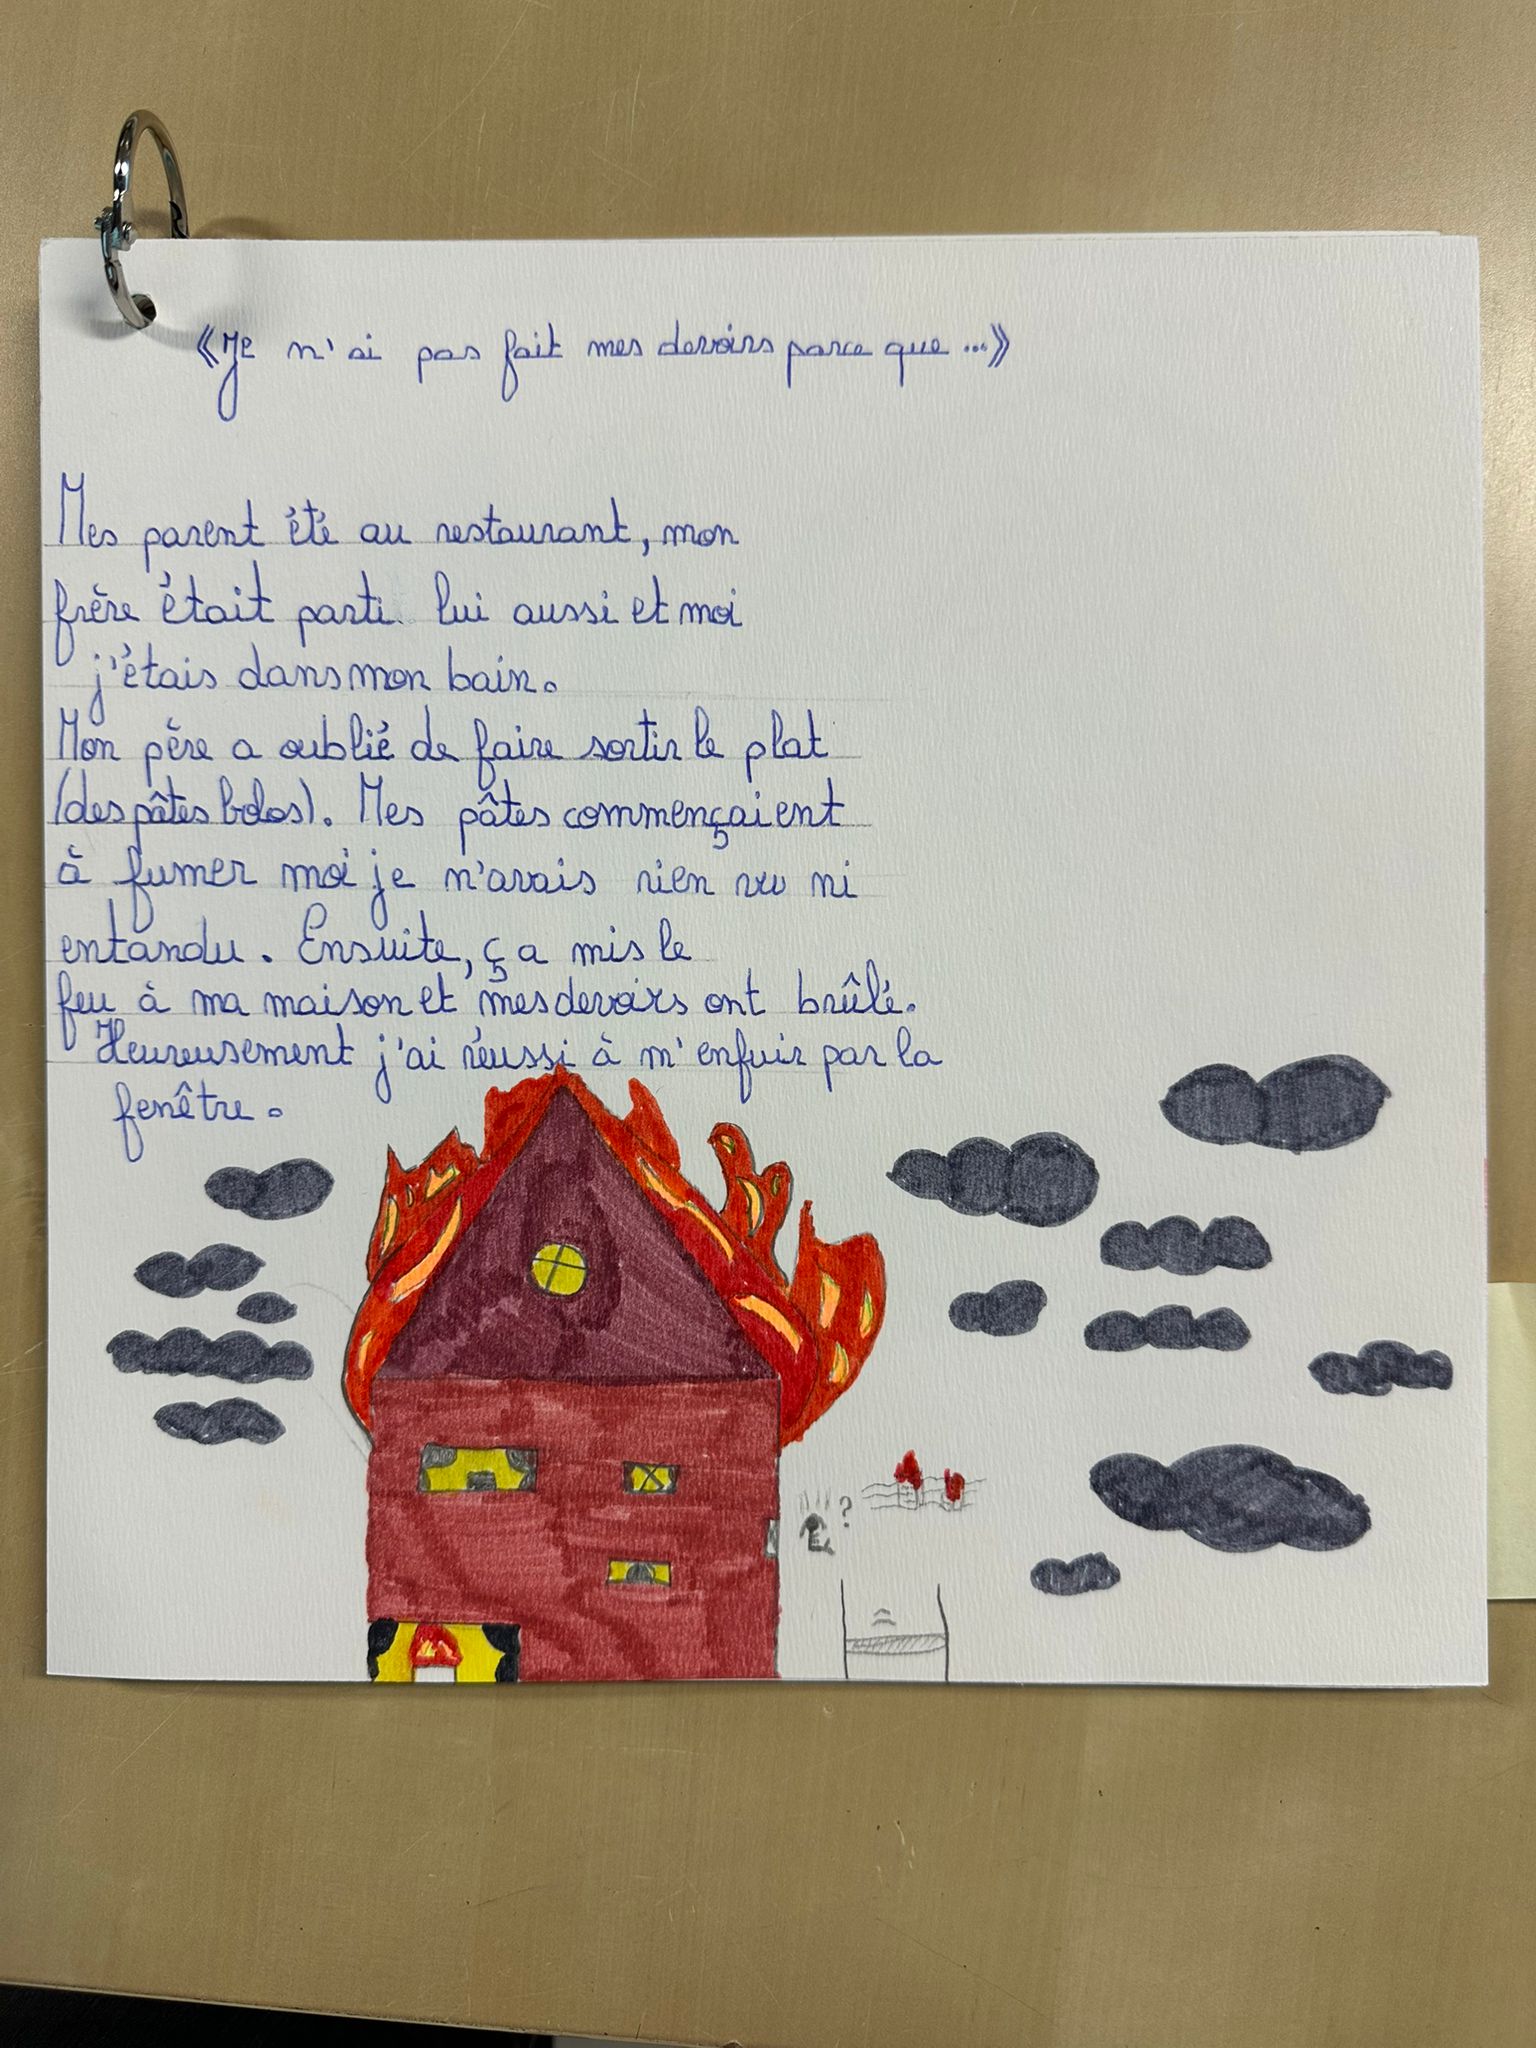 《Je n'ai pas fait mes devoirs parce que...》
Mes parent été au restaurant, mon
frère était parti lui aussi et moi
j'étais dans mon bain.
Mon père a oublié de faire sortir le plat
(des pâtes bolos). Mes pâtes commençaient
à fumer moi je n'avais rien vu ni
entandu. Ensuite, ça mis le
feu à ma maison et mes devoirs ont brûlé.
Heureusement j'ai réussi à m'enfuir par la
fenêtre.
?